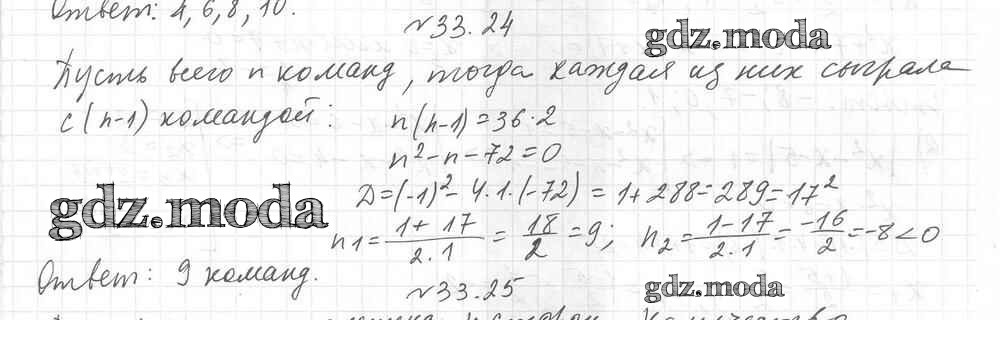 Ответ: 4, 6, 8, 10.
№33.24
gdz.moda
Пусть всего n команд, тогда каждая из них сыграла
с (n-1) командой:
n(n-1) = 36·2
n² - n - 72 = 0
gdz.moda
D = (-1)² - 4·1·(-72) = 1 + 288 = 289 = 17²
n₁ = (1 + 17)/(2·1) = 18/2 = 9; n₂ = (1 - 17)/(2·1) = -16/2 = -8 < 0
Ответ: 9 команд.
№33.25
gdz.moda